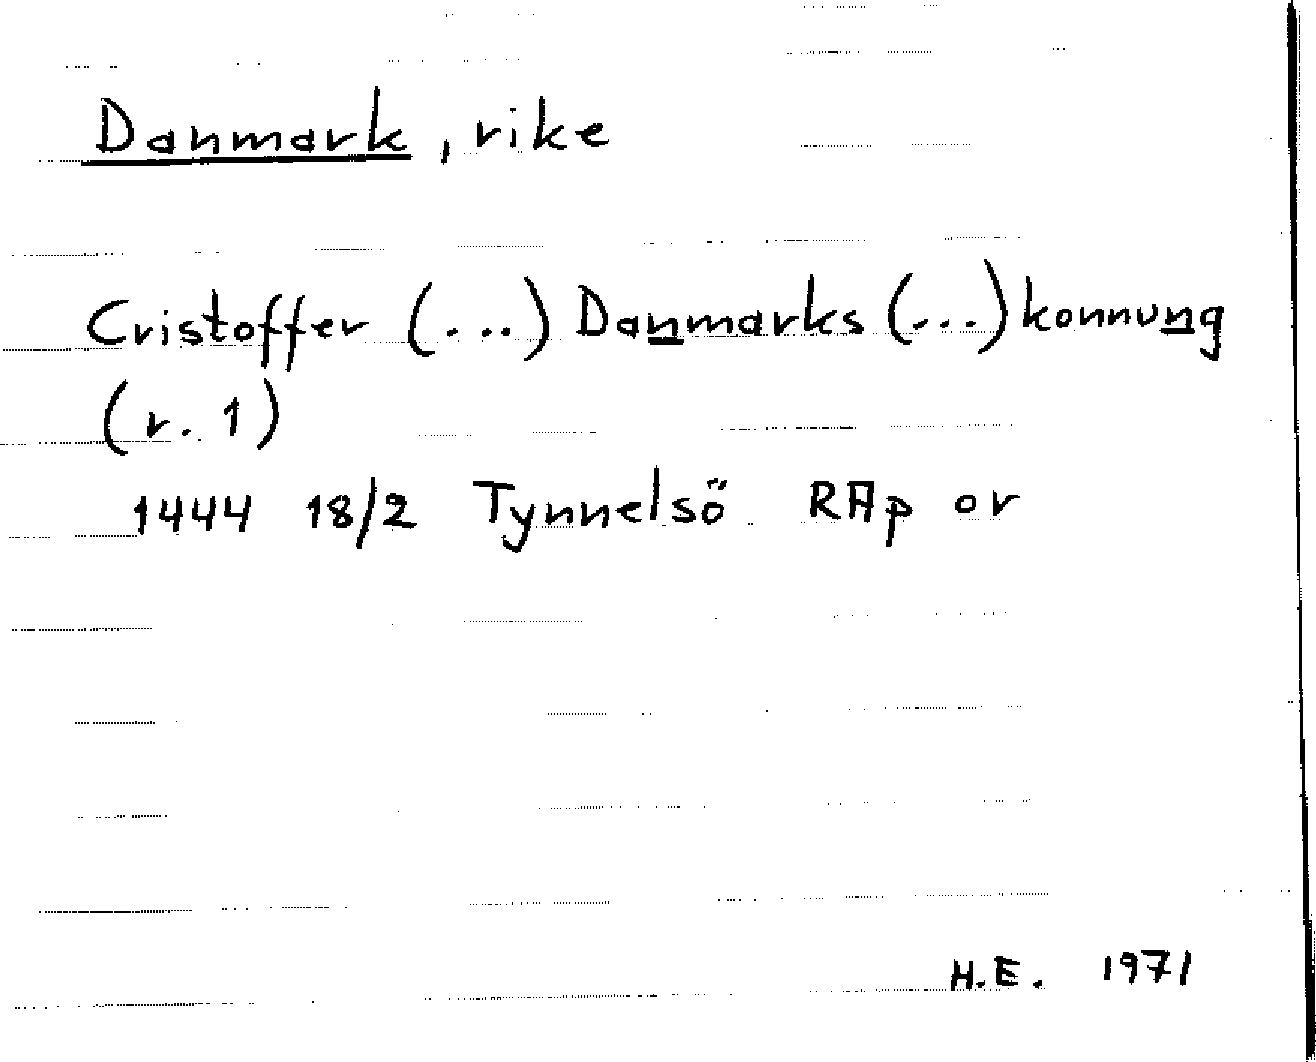 Danmark, rike
Cristoffer (...) Danmarks (...) konnung
(r. 1)
1444 18/2 Tynnelsö RAp or
H.E. 1971